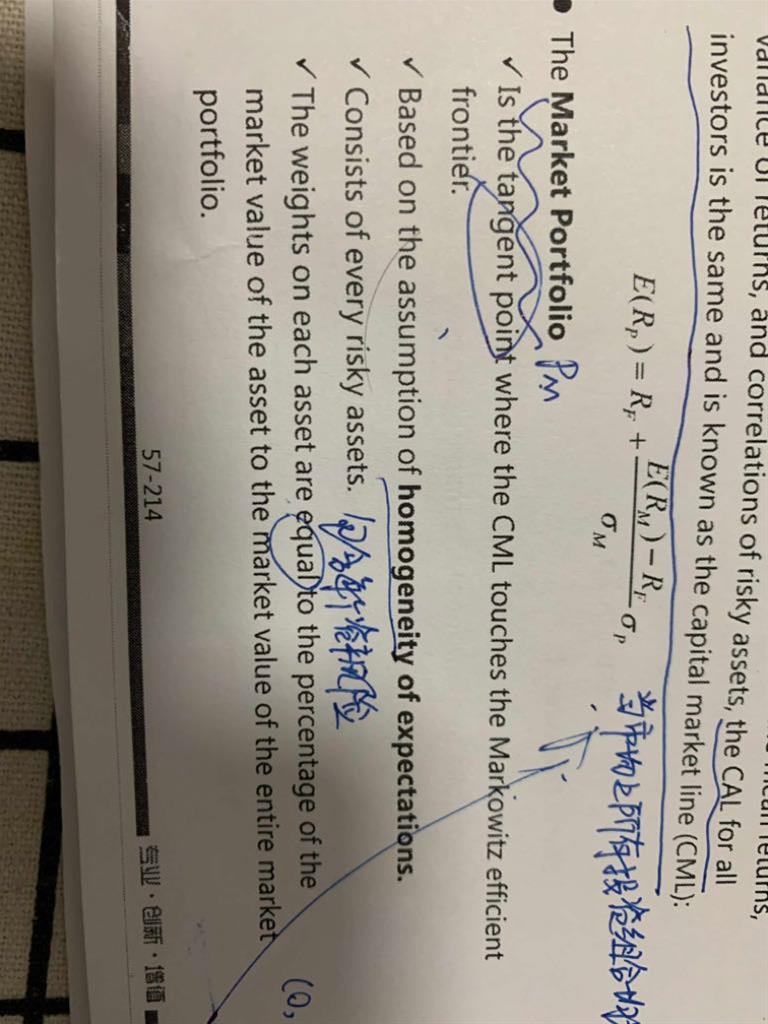 variance of returns, and correlations of risky assets, the CAL for all
investors is the same and is known as the capital market line (CML):
E(R_P) = R_F + \frac{E(R_M) - R_F}{σ_M} σ_P
当市场上所有投资组合时
• The Market Portfolio PM
✓ Is the tangent point where the CML touches the Markowitz efficient
frontier.
✓ Based on the assumption of homogeneity of expectations.
✓ Consists of every risky assets.
✓ The weights on each asset are equal to the percentage of the
market value of the asset to the market value of the entire market
portfolio.
57-214
专业·创新·增值